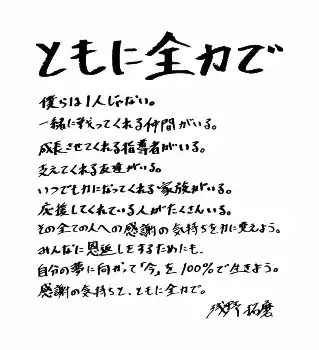 ともに全力で
僕らは1人じゃない。
一緒に戦ってくれる仲間がいる。
成長させてくれる指導者がいる。
支えてくれる友達がいる。
いつでも力になってくれる家族がいる。
応援してくれている人がたくさんいる。
その全ての人への感謝の気持ちを力に変えよう。
みんなに恩返しをするためにも、
自分の夢に向かって「今」を100%で生きよう。
感謝の気持ちと、ともに全力で。
浅野 拓磨